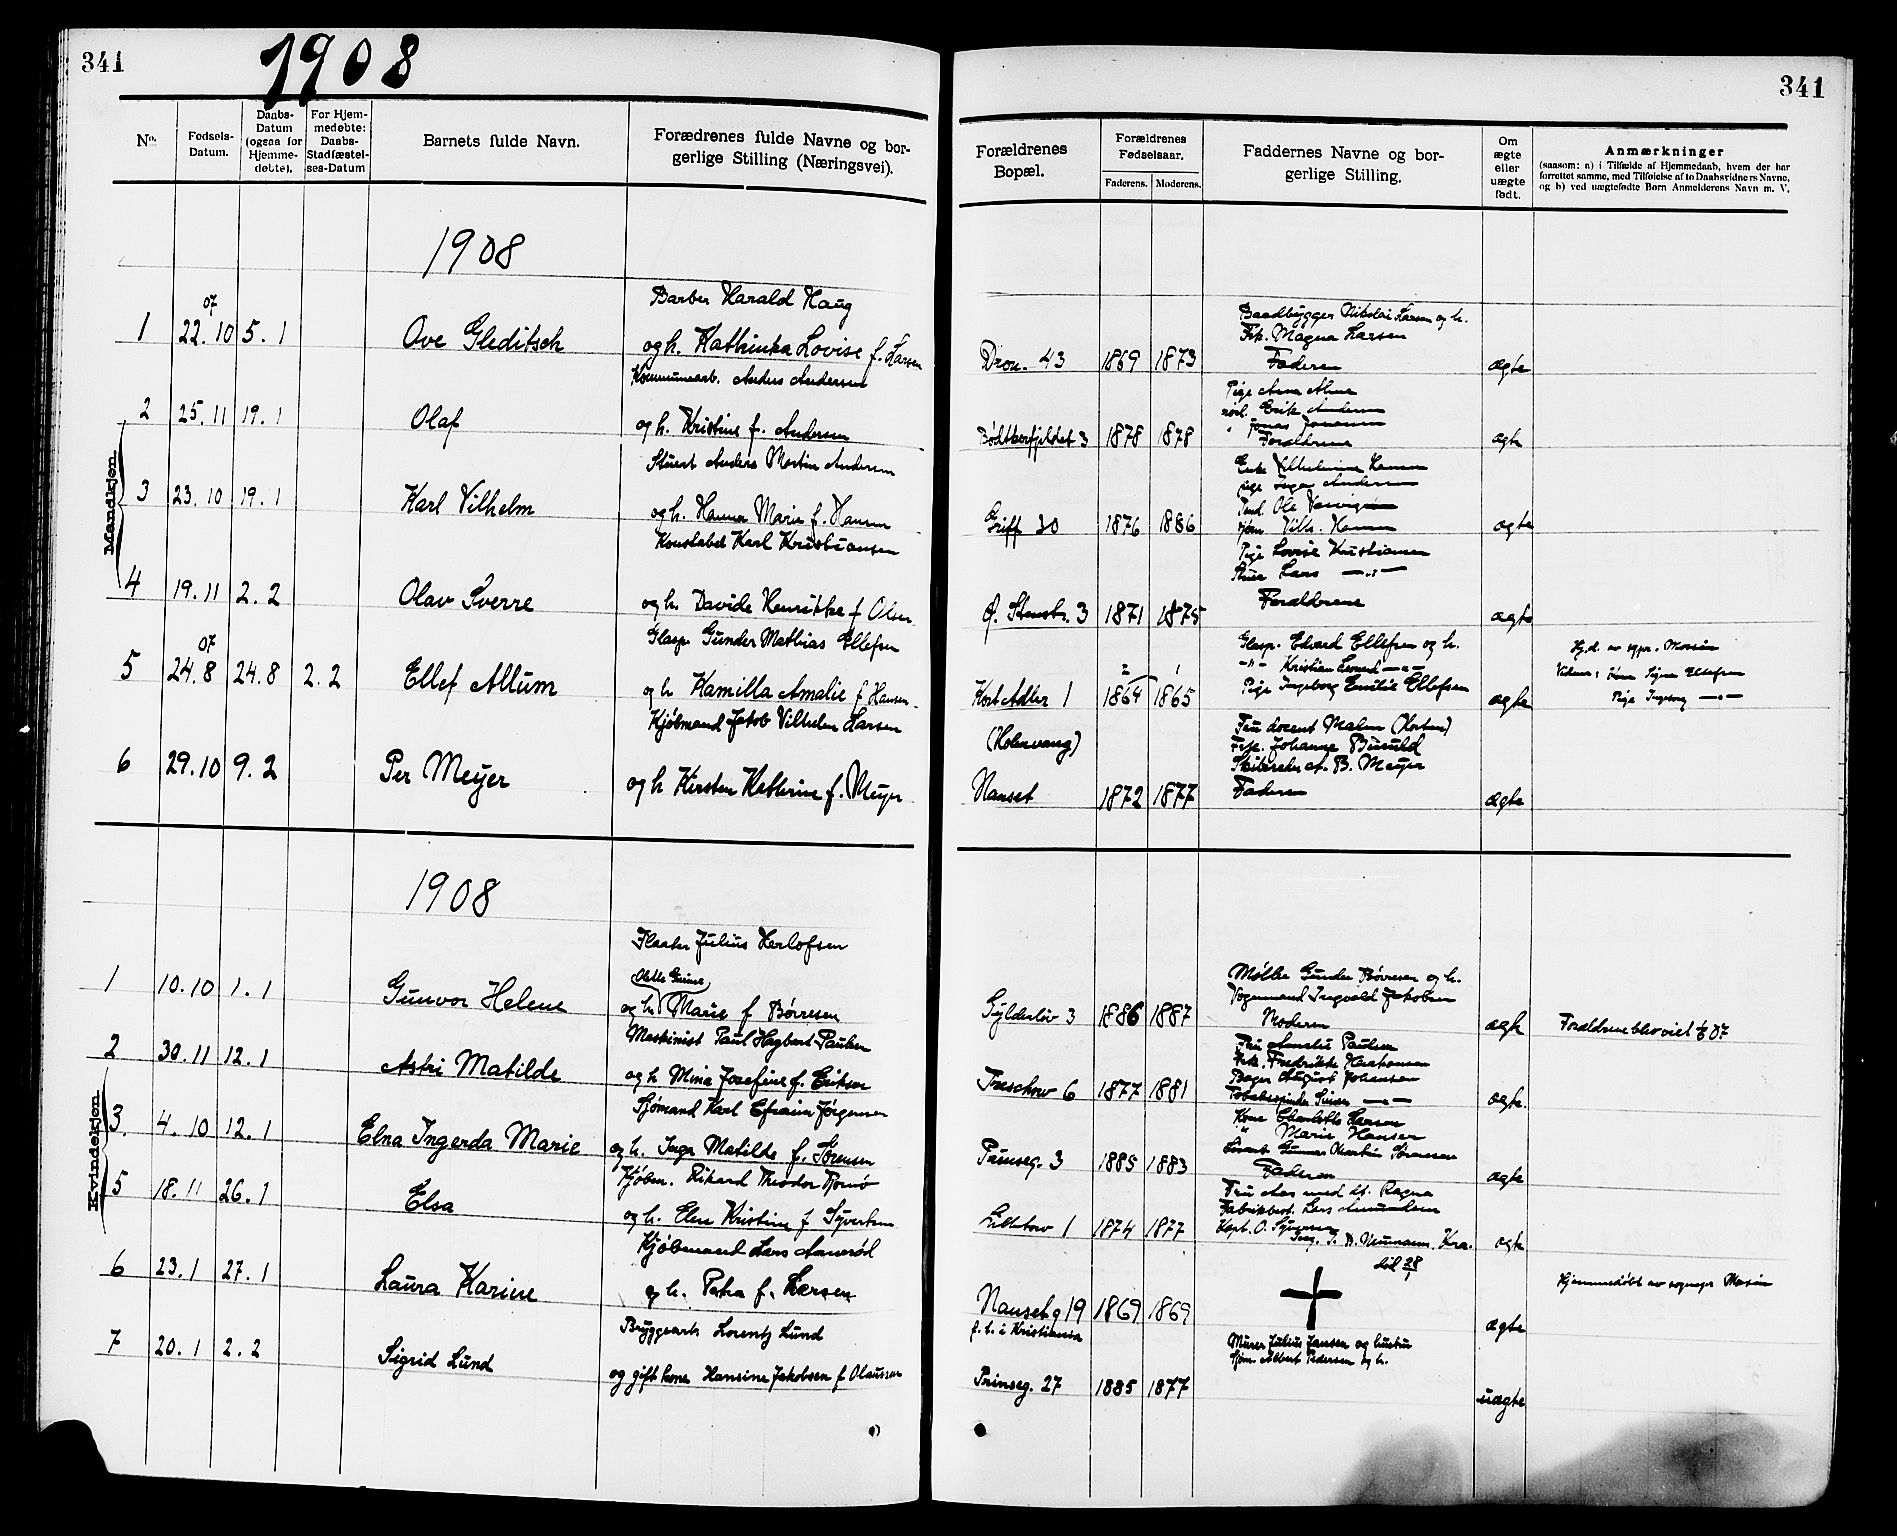 341
1908
No.
Fødsels-
Datum.
Daabs-
Datum
(ogsaa for
Hjemme-
døbte).
For Hjem-
medøbte:
Daabs-
Stadfæstel-
ses-Datum
Barnets fulde Navn.
Forædrenes fulde Navne og bor-
gerlige Stilling (Næringsvei).
1908
Mandkjøn
Barber Harald Haug
07
1 22.10 5.1 Ove Gleditsch
og h. Kathinka Lovise f. Larsen
Kommunearb. Anders Andersen
2 25.11 19.1 Olaf
og h. Kristine f. Andersen
Stuert Anders Martin Andersen
3 23.10 19.1 Karl Vilhelm
og h. Hanna Marie f. Hansen
Konstabel Karl Kristiansen
4 19.11 2.2 Olav Sverre
og h. Davide Henrikke f Olsen
07
Glasp. Gunder Mathias Ellefsen
5 24.8 24.8 2.2 Ellef Allum
og h Kamilla Amalie f Hansen
Kjøbmand Jakob Vilhelm Larsen
6 29.10 9.2 Per Meyer
og h Kirsten Katherine f. Meyer
1908
Kvindekjøn
Julius Herlofsen
1 10.10 1.1 Gunvor Helene
og h. Marie f Børresen
Maskinist Paul Hagbert Paulsen
2 30.11 12.1 Astri Matilde
og h Mina Josefine f. Eriksen
Sjømand Karl Efraim Jørgensen
3. 4.10 12.1 Elna Ingerda Marie
og h. Inga Matilde f. Sørensen
Kjøbm. Rikard Theodor
5 18.11 26.1 Elsa
og h. Elen Kristine f Syvertsen
Kjøbmand Lars
6 23.1 27.1 Laura Karine
og h. Petra f. Larsen
Bryggearb Lorentz Lund
7 20.1 2.2 Sigrid Lund
og gift kone Hansine Jakobsen f Olaussen
341
Forældrenes
Bopæl.
Forældrenes
Fødselsaar.
Faderens. Moderens.
Faddernes Navne og bor-
gerlige Stilling.
Om
ægte
eller
uægte
født.
Anmærkninger
(saasom: a) i Tilfælde af Hjemmedaab, hvem der har
forrettet samme, med Tilføielse af to Daabsvidners Navne,
og b) ved uægtefødte Børn Anmelderens Navn m. V.
Baadbygger Nikolai Larsen og h.
Frk. Magna Larsen
Dron. 43 1869 1873 Faderen ægte
Pige Anna
Erik Andersen
Bødtkerfjeldet 3 1878 1878 Forældrene ægte
Enke Vilhelmine Hansen
pige Inga Andersen
Ole
Griff 30 1876 1886 Vilh. Hansen ægte
Pige Lovise Kristiansen
Lars —〃—
Ø. Stenstr. 3 1871 1875 Forældrene ægte
Glasp. Edvard Ellefsen og h.
—〃— Kristian —〃—
2 1
Kort Adler 1 1864 1865 Pige Ingeborg Emilie Ellefsen ægte
Hjd. av sgpr.
Vidner: Signe Ellefsen
Pige Ingeborg —〃—
(Holmvang)
Fru docent Malm (Horten)
Frk. Johanne
B. Meyer
Nanset 1872 1877 Faderen ægte
Møller Gunder Børresen og h.
Vognmand Ingvald Jakobsen
Gyldenløv 3 1886 1887 Moderen ægte
Forældrene blev viet
Fru Amalie Paulsen
Frk. Fredrikke
Bager August Johansen
Treschow 6 1877 1881 —〃— ægte.
Kone Larsen
〃 Marie Hansen
Gunnar Martin Sørensen
Prinseg. 3 1885 1883 Faderen ægte
Fru Aas med dt. Ragna
Lars Amundsen
Kapt. O. Syvertsen
Lilletorv 1 1874 1877 Kra. ægte
død 28/1
Nansetg 19 1869 1869 ægte
f. h. i Kristiania
Hjemmedøbt av sognepr
Murer Julius Jansen og hustru
Sjøm. Albert Pedersen og h.
Prinseg. 27 1885 1877 uægte